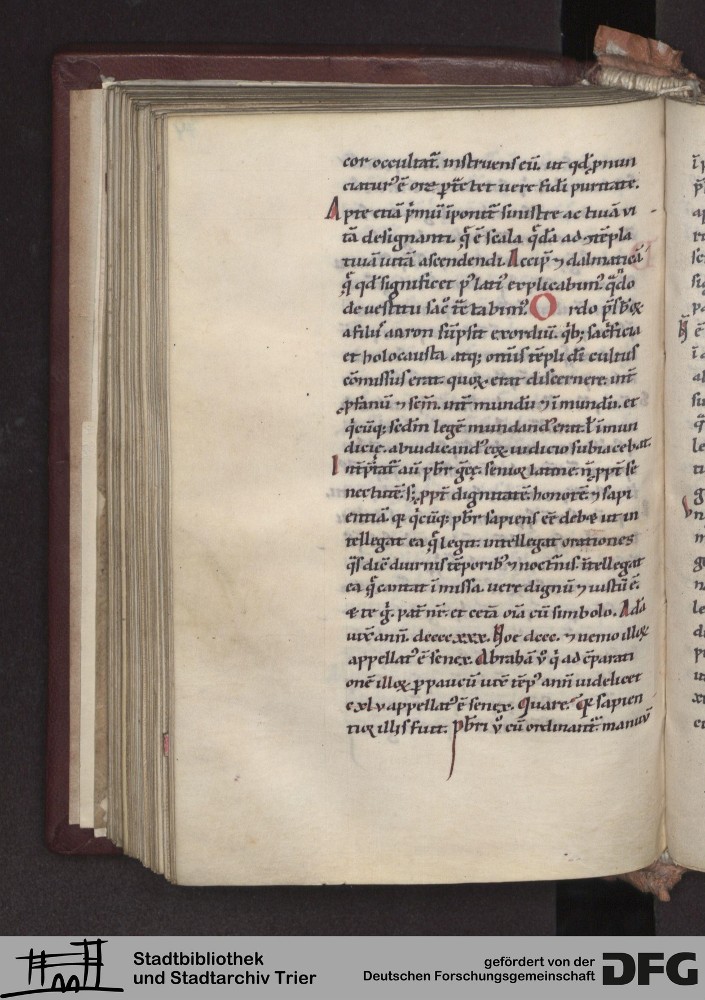 cor occultat̄. instruens eū. ut qđ ꝓnun
ciatur᾽ ē ore ꝑtētet uere fidi puritate.
Apte etiā p̄mū īponit̄ sinistre actiuā vi
tā designanti. q̄ ē scala q̄dā ad ɔtēpla
tiuā uitā ascendendi. Accip̄ ⁊ dalmaticā
q̄ qđ significet p᾽ lati᾽ explicabim᾽. q̄ndo
de vestitu sac̄ tētabim᾽. Ordo p̄sb̄oꝝ
a filiis aaron sūpsit exordiū. qb; sac̄ficia
et holocausta atq; om̄is tēpli dī cultus
cōmissus erat. quoꝝ erat discernere. int̄
ꝓfanū ⁊ scm̄. int̄ mundū ⁊ īmundū. et
q̇cūq; scdm̄ legē mundand᾽ erat. ł īmun
dicię. abiudicand᾽ eoꝝ iudicio subiacebat.
Int̄p̄tat̄ aū pb̄r gc̄e. senior latine. n̄ ꝓpt̄ se
nectutē. s; ꝓpt̄ dignitatē. honorē. ⁊ sapi
entiā. qꝛ q̇cūq; pb̄r sapiens eē debet ut in
tellegat ea q̄ legit. intellegat orationes
q̄s diē diurnis tēporib᾽ ⁊ noct̄nis. ītellegat
ea q̄ cantat ī missa. uere dignū ⁊ iustū ē.
⁊ te g̊. pat̄ nr̄. et cetā oīa cū simbolo. Adā
uix̄ ann̄. dcccc.xxx. Noe dccc. ⁊ nemo illoꝝ
appellat᾽ ē senex. Abrahā v̊ q̇ ad ɔ̄parati
onē illoꝝ ꝑpaucū uix̄ tēp᾽ ann̄ uidelicet
c xl v appellat᾽ ē senex. Quare. qꝛ sapien
tior illis fuit. Pb̄ri v̊ cū ordinant̄. manuū
Stadtbibliothek
und Stadtarchiv Trier
gefördert von der
Deutschen Forschungsgemeinschaft
DFG